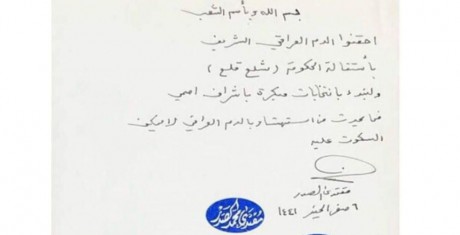 بسم الله وبأسم الشعب
احقنوا الدم العراقي الشريف
بأستقالة الحكومة (شلع قلع)
ولنبدء بانتخابات مبكرة باشراف اممي
فما يحدث من استهتار بالدم العراقي لا يمكن
السكوت عليه
مقتدى الصدر
٦ صفر الخير ١٤٤١